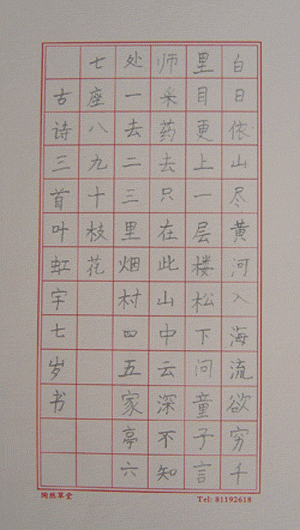 白日依山尽黄河入海流欲穷千
里目更上一层楼松下问童子言
师采药去只在此山中云深不知
处一去二三里烟村四五家亭六
七座八九十枝花
古诗三首叶虹宇七岁书
陶然草堂
Tel: 81192618